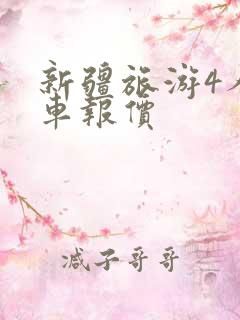 新疆旅游4
車報價
减子哥哥